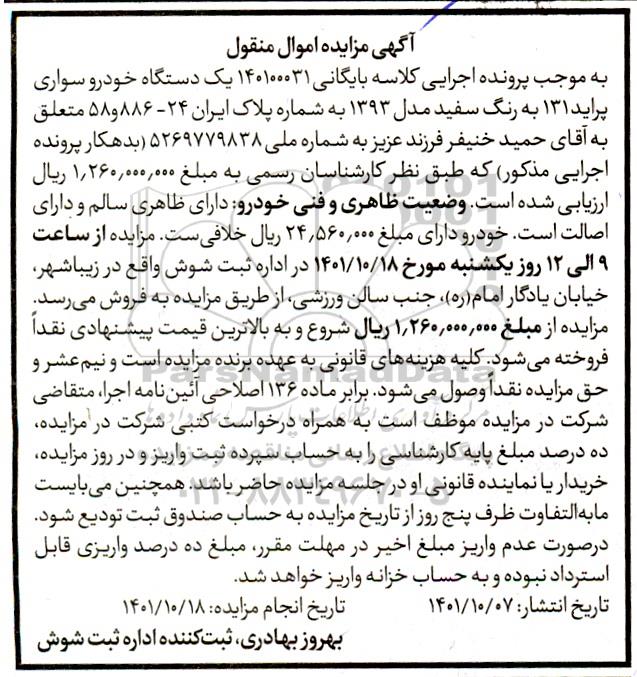 آگهی مزایده اموال منقول
به موجب پرونده اجرایی کلاسه بایگانی ۱۴۰۱۰۰۰۳۱ یک دستگاه خودرو سواری
پراید۱۳۱ به رنگ سفید مدل ۱۳۹۳ به شماره پلاک ایران ۲۴- ۸۸۶و۵۸ متعلق
به آقای حمید خنیفر فرزند عزیز به شماره ملی ۵۲۶۹۷۷۹۸۳۸ (بدهکار پرونده
اجرایی مذکور) که طبق نظر کارشناسان رسمی به مبلغ ۱٫۲۶۰٫۰۰۰٫۰۰۰ ریال
ارزیابی شده است. وضعیت ظاهری و فنی خودرو: دارای ظاهری سالم و دارای
اصالت است. خودرو دارای مبلغ ۲۴٫۵۶۰٫۰۰۰ ریال خلافی‌ست. مزایده از ساعت
۹ الی ۱۲ روز یکشنبه مورخ ۱۴۰۱/۱۰/۱۸ در اداره ثبت شوش واقع در زیباشهر،
خیابان یادگار امام(ره)، جنب سالن ورزشی، از طریق مزایده به فروش می‌رسد.
مزایده از مبلغ ۱٫۲۶۰٫۰۰۰٫۰۰۰ ریال شروع و به بالاترین قیمت پیشنهادی نقداً
فروخته می‌شود. کلیه هزینه‌های قانونی به عهده برنده مزایده است و نیم‌عشر و
حق مزایده نقداً وصول می‌شود. برابر ماده ۱۳۶ اصلاحی آئین‌نامه اجرا، متقاضی
شرکت در مزایده موظف است به همراه درخواست کتبی شرکت در مزایده،
ده درصد مبلغ پایه کارشناسی را به حساب سپرده ثبت واریز و در روز مزایده،
خریدار یا نماینده قانونی او در جلسه مزایده حاضر باشد. همچنین می‌بایست
مابه‌التفاوت ظرف پنج روز از تاریخ مزایده به حساب صندوق ثبت تودیع شود.
درصورت عدم واریز مبلغ اخیر در مهلت مقرر، مبلغ ده درصد واریزی قابل
استرداد نبوده و به حساب خزانه واریز خواهد شد.
تاریخ انتشار: ۱۴۰۱/۱۰/۰۷ تاریخ انجام مزایده: ۱۴۰۱/۱۰/۱۸
بهروز بهادری، ثبت‌کننده اداره ثبت شوش
ParsNamadData